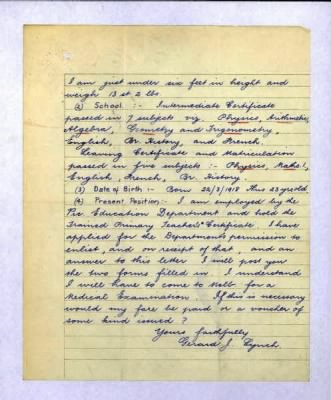 I am just under six feet in height and
weigh 13 st 2 lbs.
(2) School :- Intermediate Certificate
passed in 7 subjects viz. Physics, Arithmetic,
Algebra, Geometry and Trigonometry,
English, Br History, and French.
Leaving Certificate and Matriculation
passed in five subjects :- Physics, Maths I,
English, French, Br. History.
(3) Date of Birth :- Born 22/3/1918 Thus 23 yrs old
(4) Present Position :- I am employed by the
Vic. Education Department and hold the
Trained Primary Teacher's Certificate. I have
applied for the Department's permission to
enlist, and on receipt of that, and an
answer to this letter I will post you
the two forms filled in. I understand
I will have to come to Melb. for a
Medical Examination. If this is necessary
would my fare be paid or a voucher of
some kind issued?
Yours faithfully
Gerard J. Lynch.